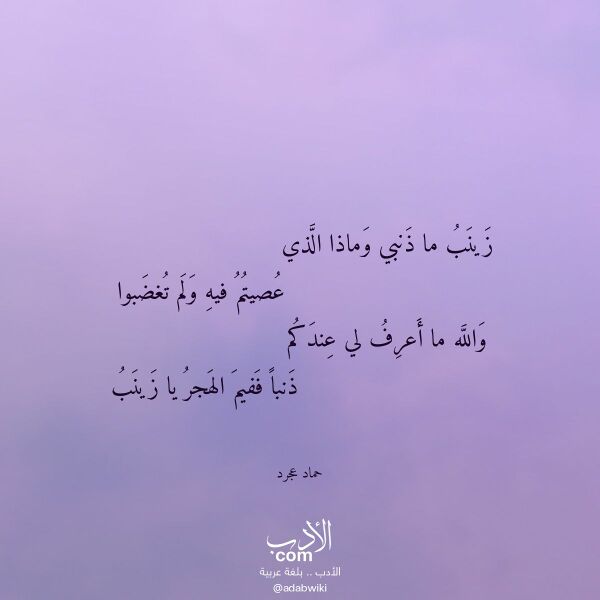 زَينَبُ ما ذَنبي وَماذا الَّذي
عُصيتُمُ فيهِ وَلَم تُغضَبوا
وَاللَّه ما أَعرِفُ لي عِندَكُم
ذَنباً فَفيمَ الهَجرُ يا زَينَبُ
حماد عجرد
الأدب
.com
الأدب .. بلغة عربية
@adabwiki